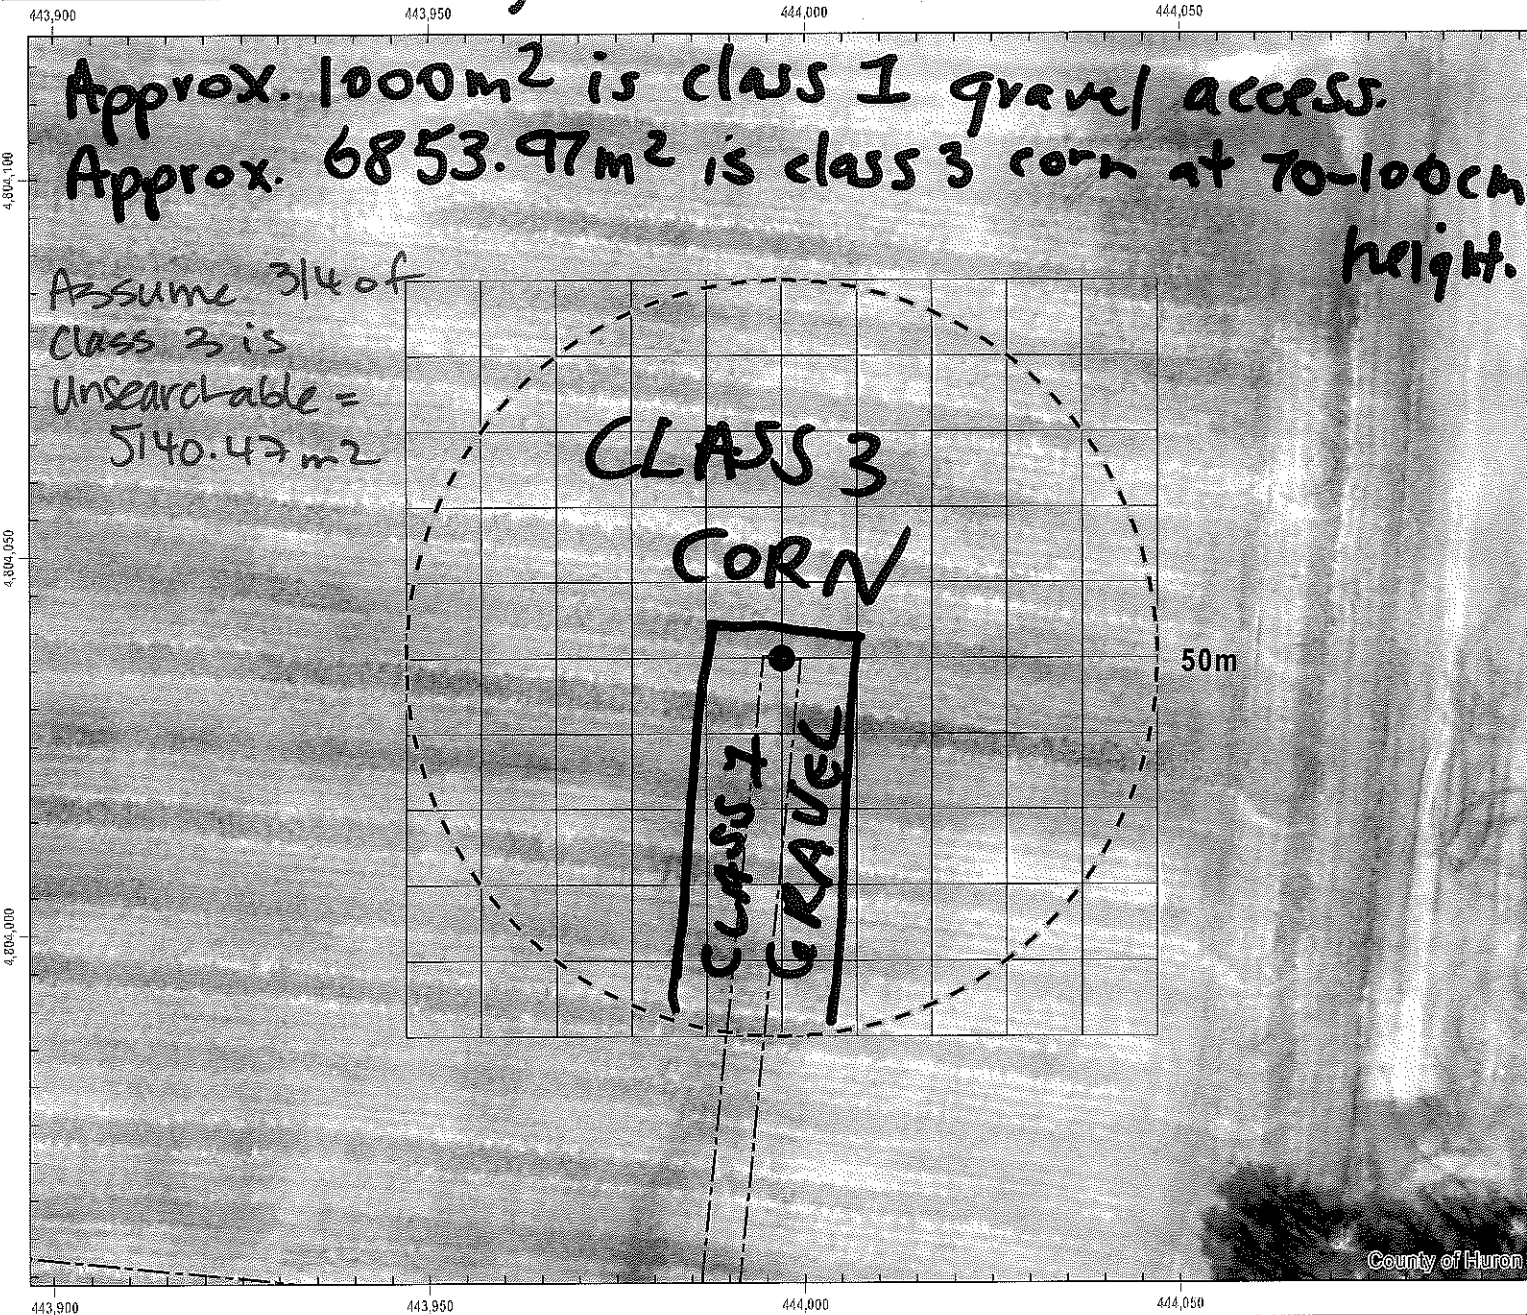 443,900 443,950 444,000 444,050
Approx. 1000m² is class 1 gravel access.
Approx. 6853.97m² is class 3 corn at 70-100cm height.
4,804,100
Assume 3/4 of
Class 3 is
Unsearchable =
5140.47m2
CLASS 3
CORN
4,804,050
50m
CLASS 1
GRAVEL
4,804,000
County of Huron
443,900 443,950 444,000 444,050